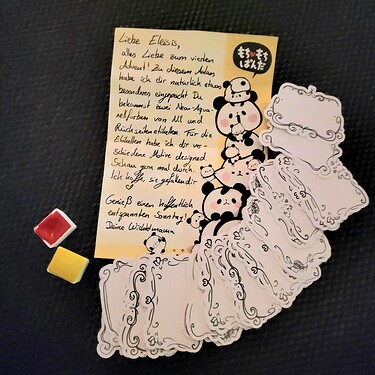 Liebe Eleisis,
alles Liebe zum vierten
Advent! Zu diesem Anlass
habe ich dir natürlich etwas
besonderes eingepackt. Du
bekommst zwei Neon-Aqua-
rellfarben von und
Rückseitenetiketten. Für die
Etiketten habe ich dir ver-
schiedene Motive designed.
Schau gern mal durch.
Ich hoffe sie gefallen dir
Genieß einen hoffentlich
entspannten Sonntag!
Deine Wichtelmama
もちもち
ぱんだ